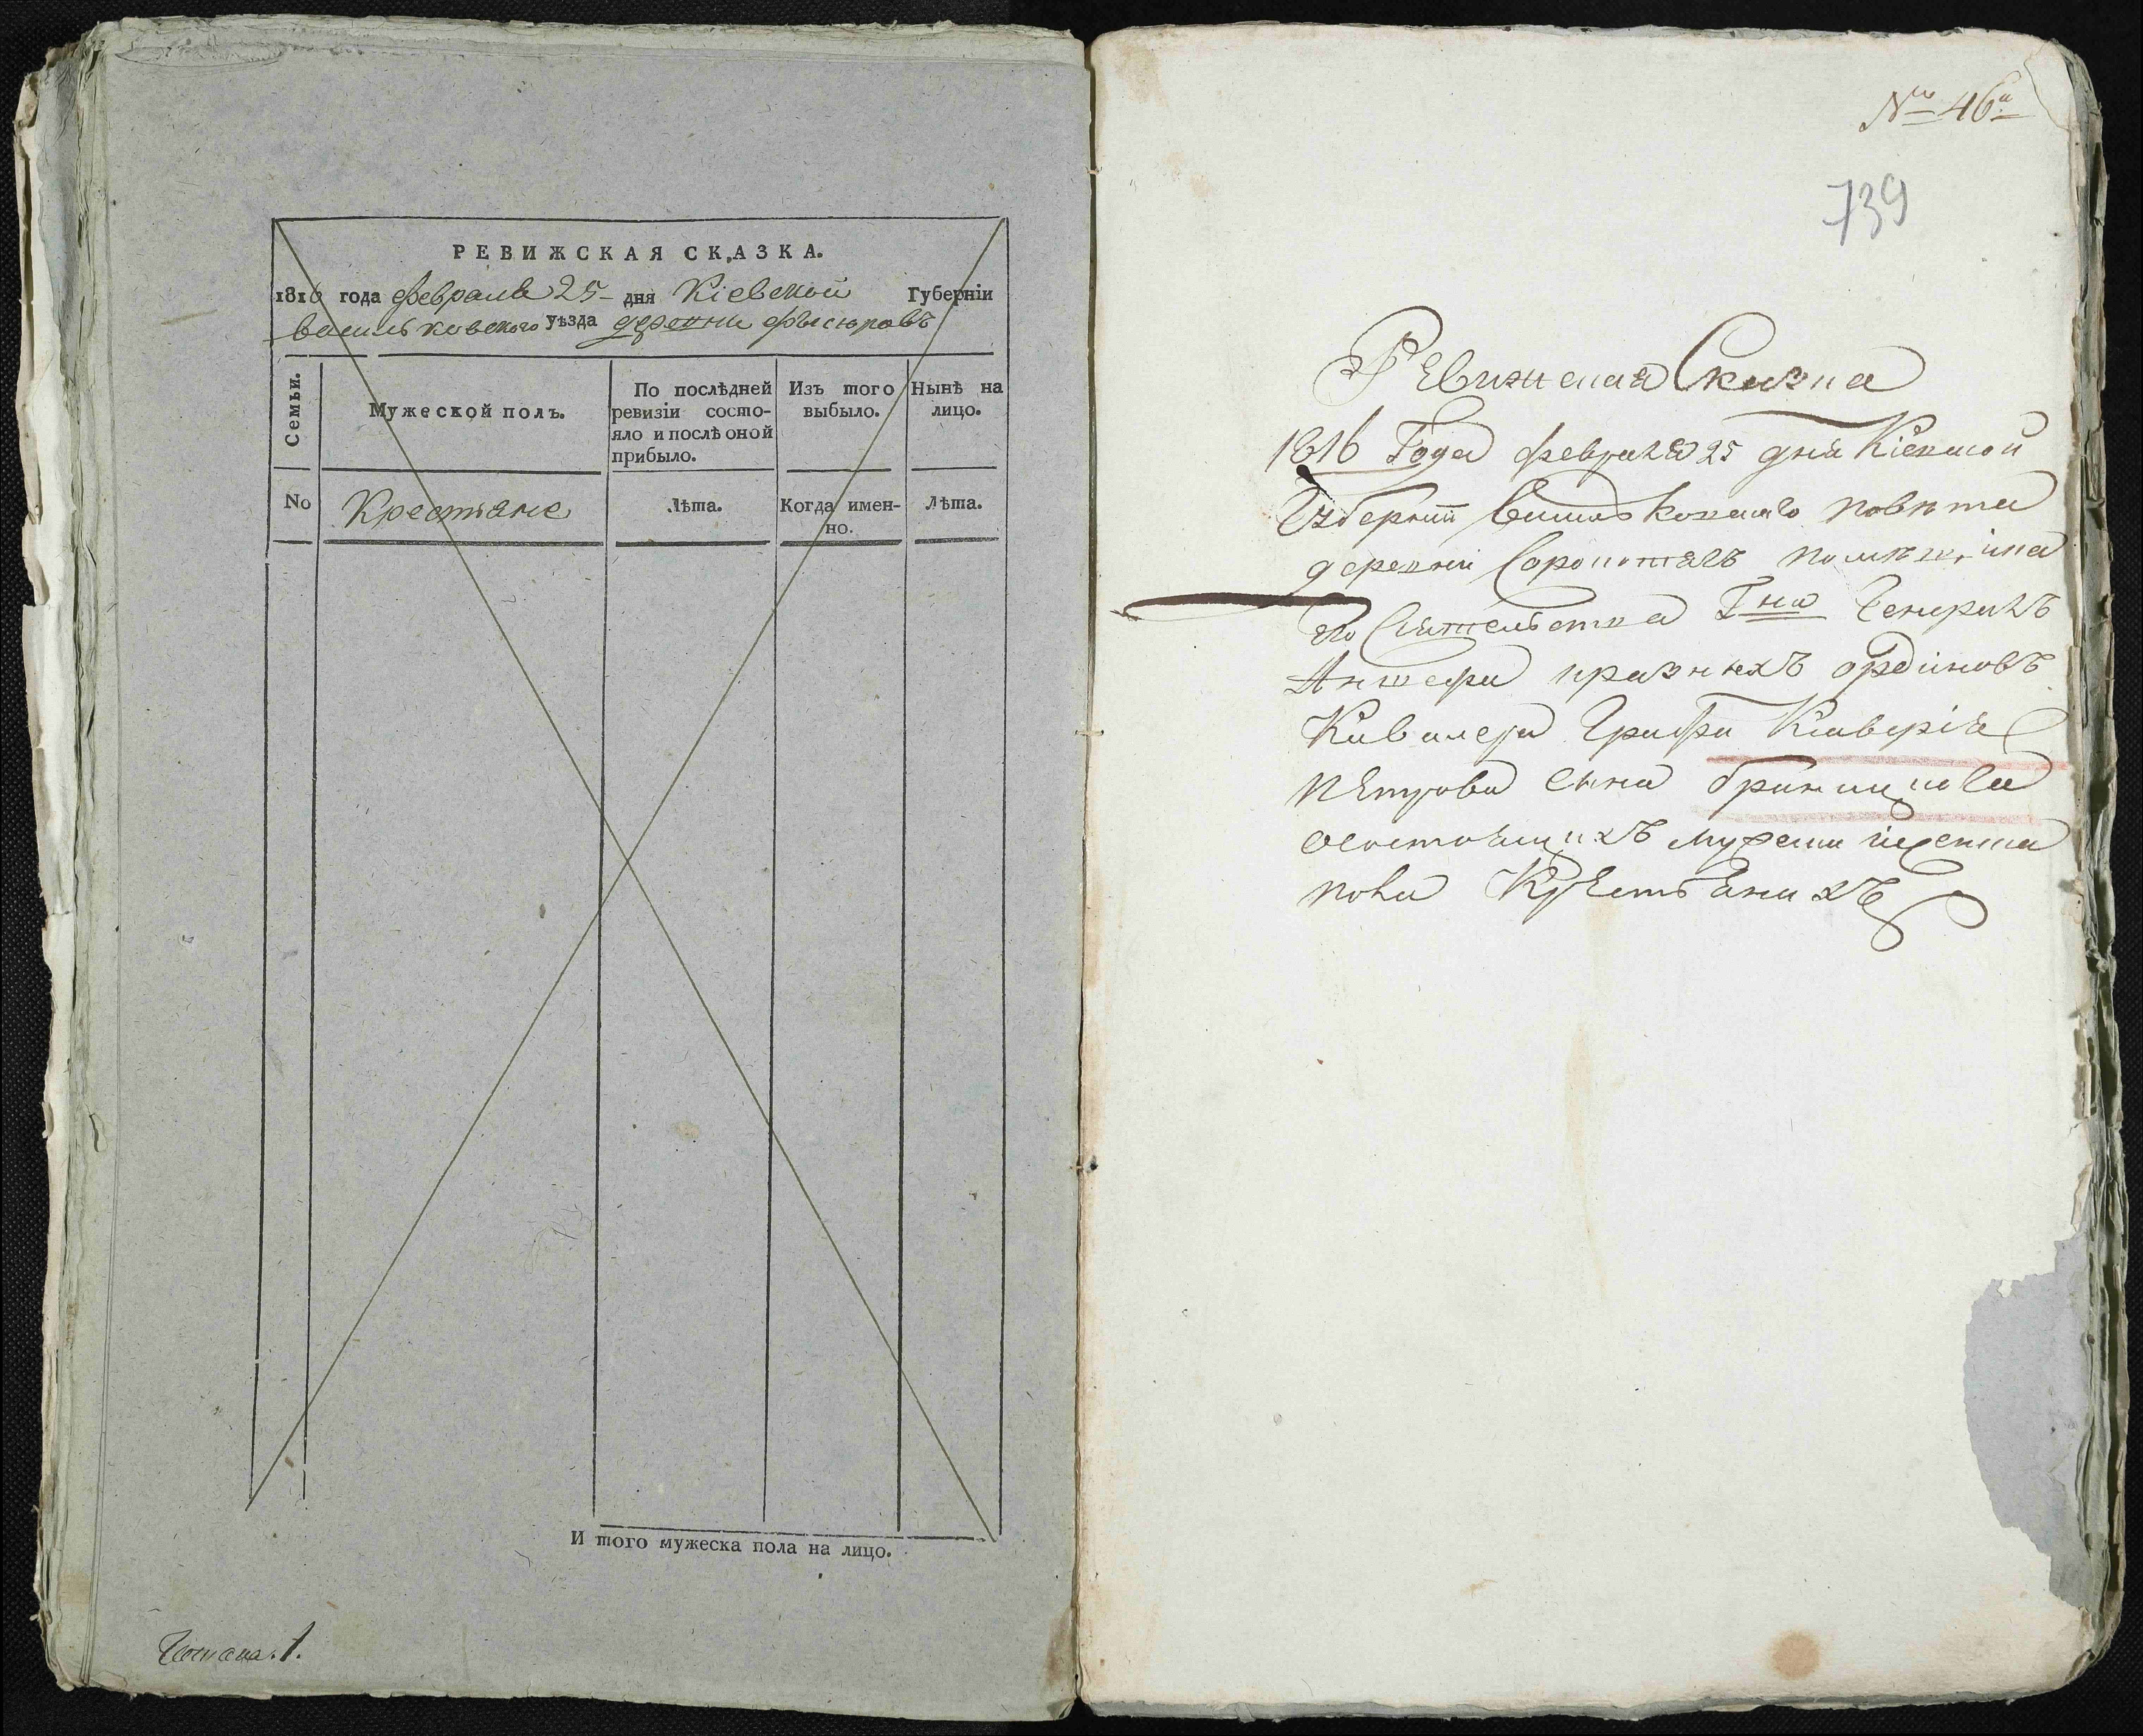 РЕВИЖСКАЯ СКАЗКА.
1816 года февраля 25 дня Кіевской Губерніи
васильковского уѣзда деревни фесюровъ
Семьи. Мужеской полъ. По послѣдней ревизіи состо- Изъ того Нынѣ на
яло и послѣ оной выбыло. лицо.
прибыло.
No Крестьяне Лѣта. Когда имен- Лѣта.
но.
И того мужеска пола на лицо.
№ 46й
739
Ревижская Сказка
1816 Года февраля 25 дня Кіевской
Губернии Васильковскаго повѣта
деревни Сорокотягъ помѣщика
его Сіятельства Гна Генералъ
Аншефа и разныхъ орденовъ
Кавалера Графа Ксаверія
Петрова сына браницкаго
о состоящихъ мужеска и женска
пола Крестьянахъ